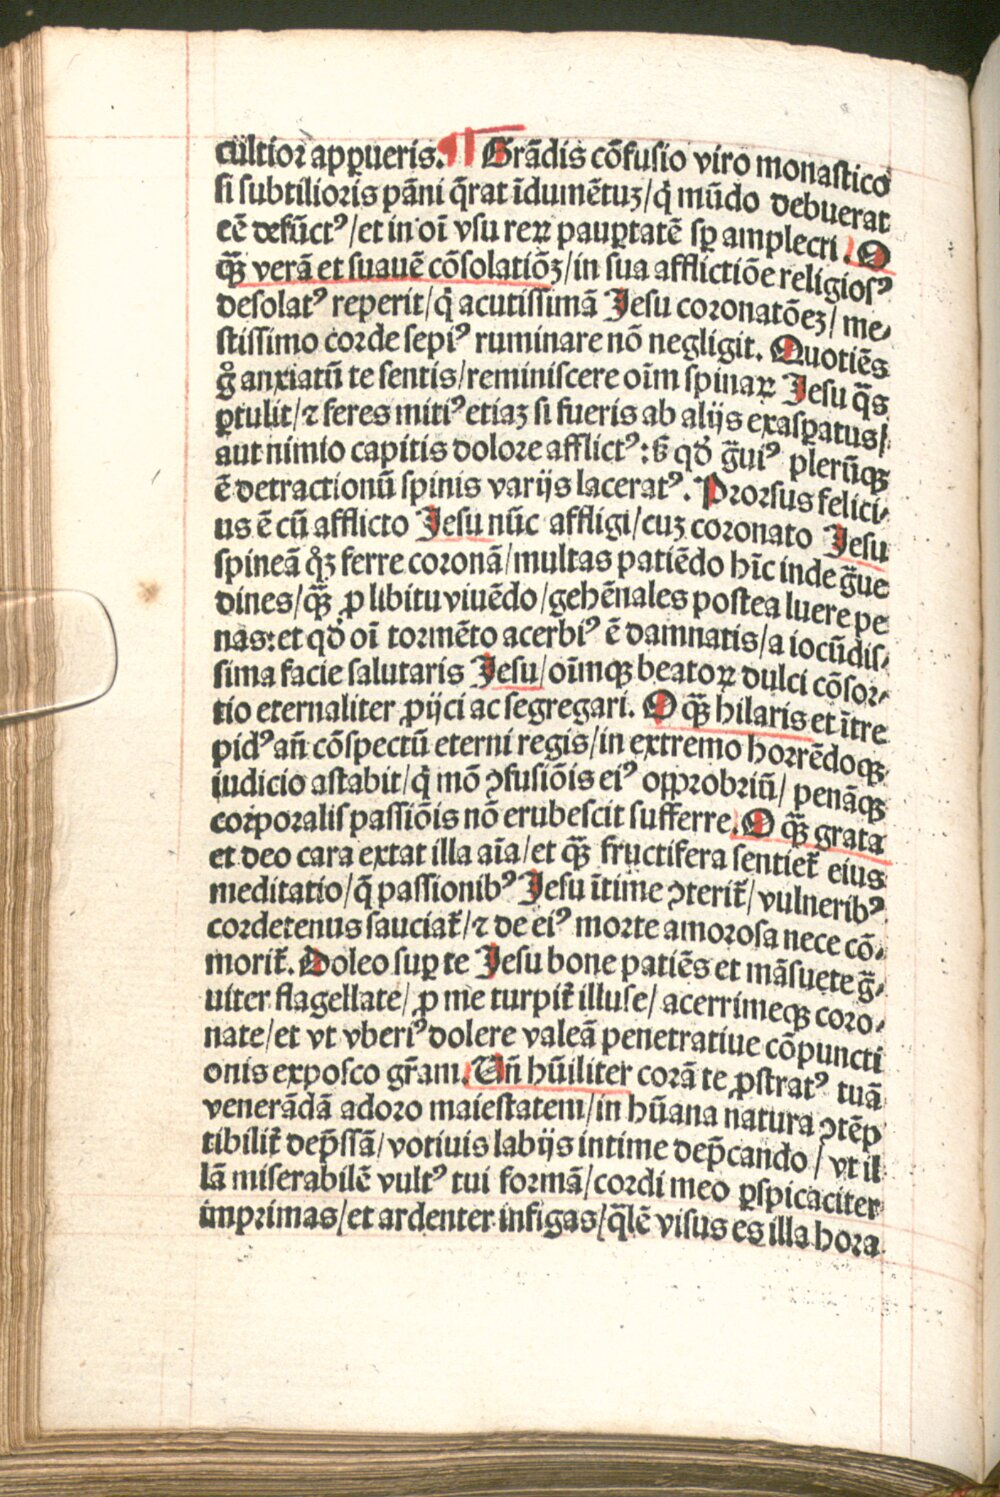 cultior apꝑueris. ¶ Grãdis cõfusio viro monastico
si subtilioris pãni q̃rat ĩdumẽtuꝫ/q̇ mũdo debuerat
eẽ defũctꝰ/et in oĩ vsu reꝝ pauꝑtatẽ sꝑ amplecti. O
qꝫ̃ verã et suauẽ cõsolatiõꝫ/in sua afflictiõe religiosꝰ
desolatꝰ reperit/q̇ acutissimã Jesu coronatõeꝫ/me⸗
stissimo corde sepiꝰ ruminare nõ negligit. Quotiẽs
g̊ anxiatũ te sentis/reminiscere oĩm spinaꝝ Jesu q̃s
ꝑtulit/⁊ feres mitiꝰ etiaꝫ si fueris ab alijs exasꝑatus/
aut nimio capitis dolore afflictꝰ: ẜ qď g̃uiꝰ plerũqꝫ
ẽ detractionũ spinis varijs laceratꝰ. Prorsus felici⸗
us ẽ cũ afflicto Jesu nũc affligi/cuꝫ coronato Jesu
spineã qͦꝫ ferre coronã/multas patiẽdo hĩc inde g̃ue
dines/qꝫ̃ ꝓ libitu viuẽdo/gehẽnales postea luere pe
nas: et qď oĩ tormẽto acerbiꝰ ẽ damnatis/a iocũdis⸗
sima facie salutaris Jesu/oĩmqꝫ beatoꝝ dulci cõsor⸗
tio eternaliter ꝓijci ac segregari. O qꝫ̃ hilaris et ĩtre
pidꝰ añ cõspectũ eterni regis/in extremo horrẽdoqꝫ
iudicio astabit/q̇ mõ ↄfusiõis eiꝰ oꝓprobriũ/penãqꝫ
corporalis passiõis nõ erubescit sufferre. O qꝫ̃ grata
et deo cara extat illa aĩa/et qꝫ̃ fructifera sentiet̃ eius
meditatio/q̃ passionibꝰ Jesu ĩtime ↄterit̃/vulneribꝰ
cordetenus sauciat̃/⁊ de eiꝰ morte amorosa nece cõ⸗
morit̃. Doleo suꝑ te Jesu bone patiẽs et mãsuete g̃⸗
uiter flagellate/ꝓ me turpit̃ illuse/acerrimeqꝫ coro⸗
nate/et vt vberiꝰ dolere valeã penetratiue cõpuncti
onis exposco gr̃am. Vñ hũiliter corã te ꝓstratꝰ tuã
venerãdã adoro maiestatem/in hũana natura ↄtẽp
tibilit̃ dep̃ssã/votiuis labijs intime dep̃cando/vt il
lã miserabilẽ vultꝰ tui formã/cordi meo ꝑspicaciter
imprimas/et ardenter infigas/q̃lẽ visus es illa hora